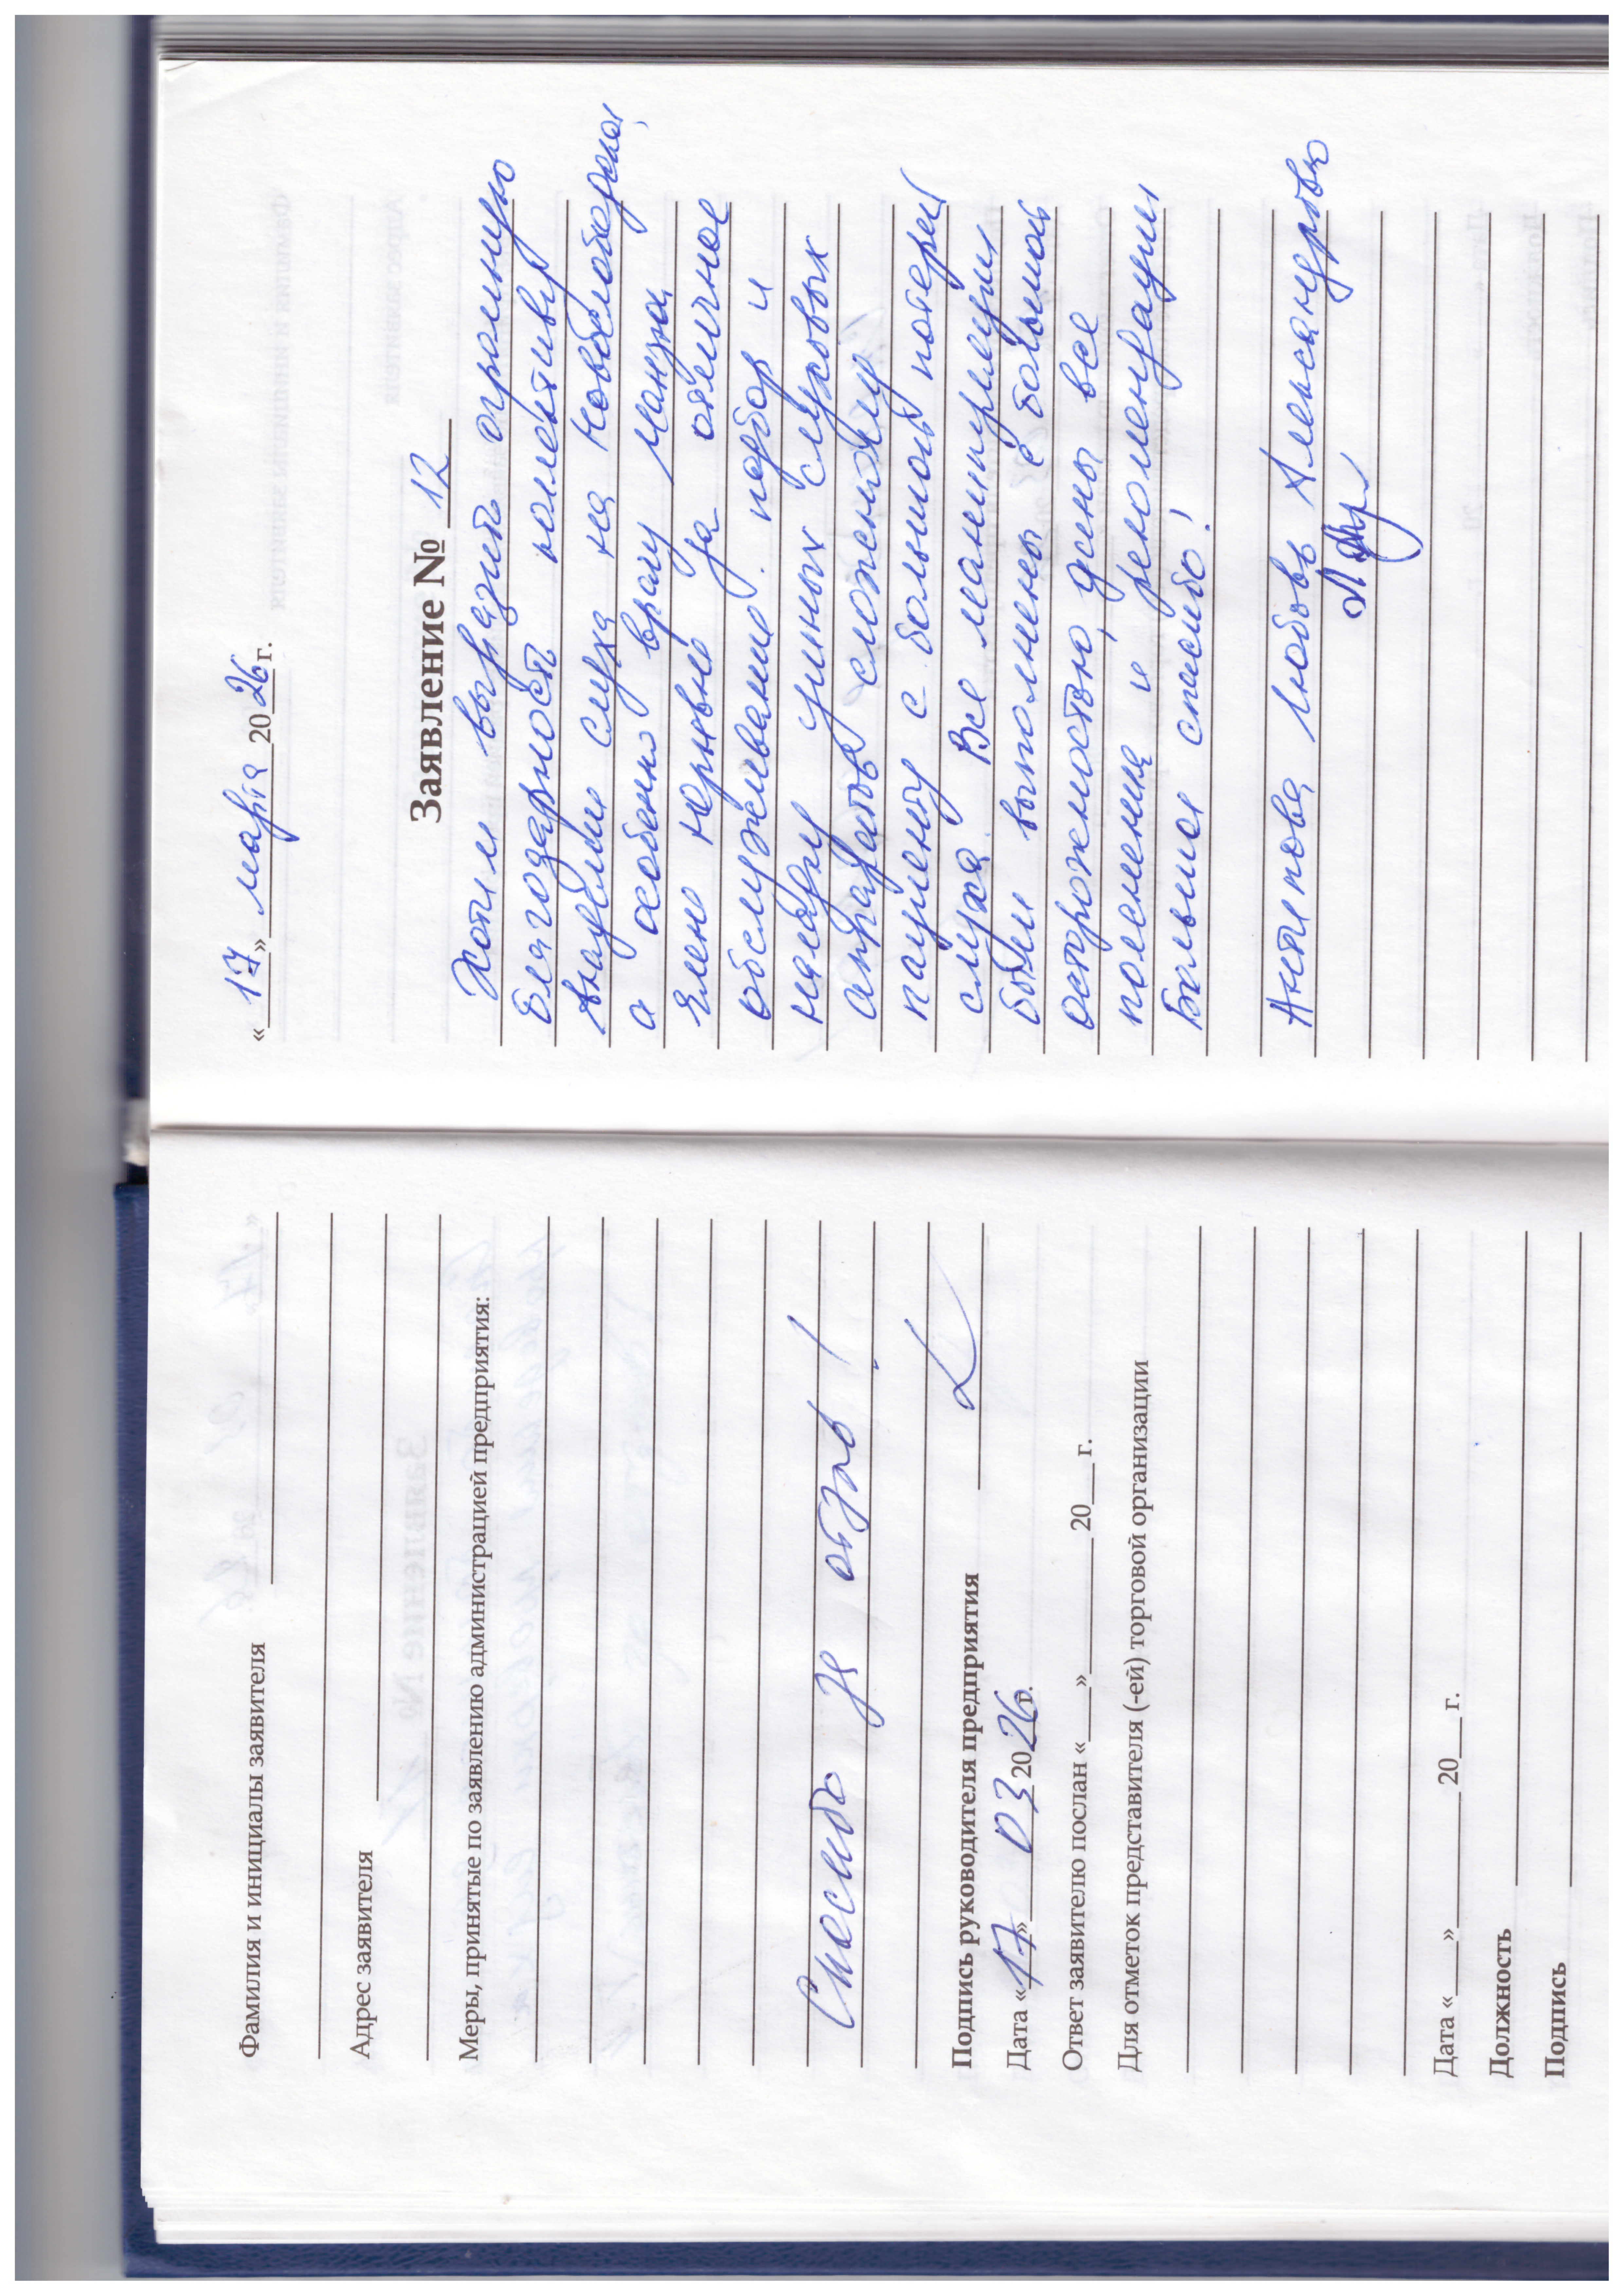 Фамилия и инициалы заявителя
Адрес заявителя
Меры, принятые по заявлению администрацией предприятия:
Спасибо за отзыв!
Подпись руководителя предприятия
Дата «17» 03 2026г.
Ответ заявителю послан «___»________20___г.
Для отметок представителя (-ей) торговой организации
Дата «___»________20___г.
Должность
Подпись
«17» марта 2026г.
Заявление № 12
Хотим выразить огромную
благодарность коллективу
Академии слуха на
а особенно врачу
Елене за отличное
обслуживание. подбор и
умных слуховых
аппаратов
пациенту с большой потерей
слуха. Все манипуляции
были выполнены с большой
осторожностью, даны все
пояснения и рекомендации
Большое спасибо!
Антипова Любовь Александровна